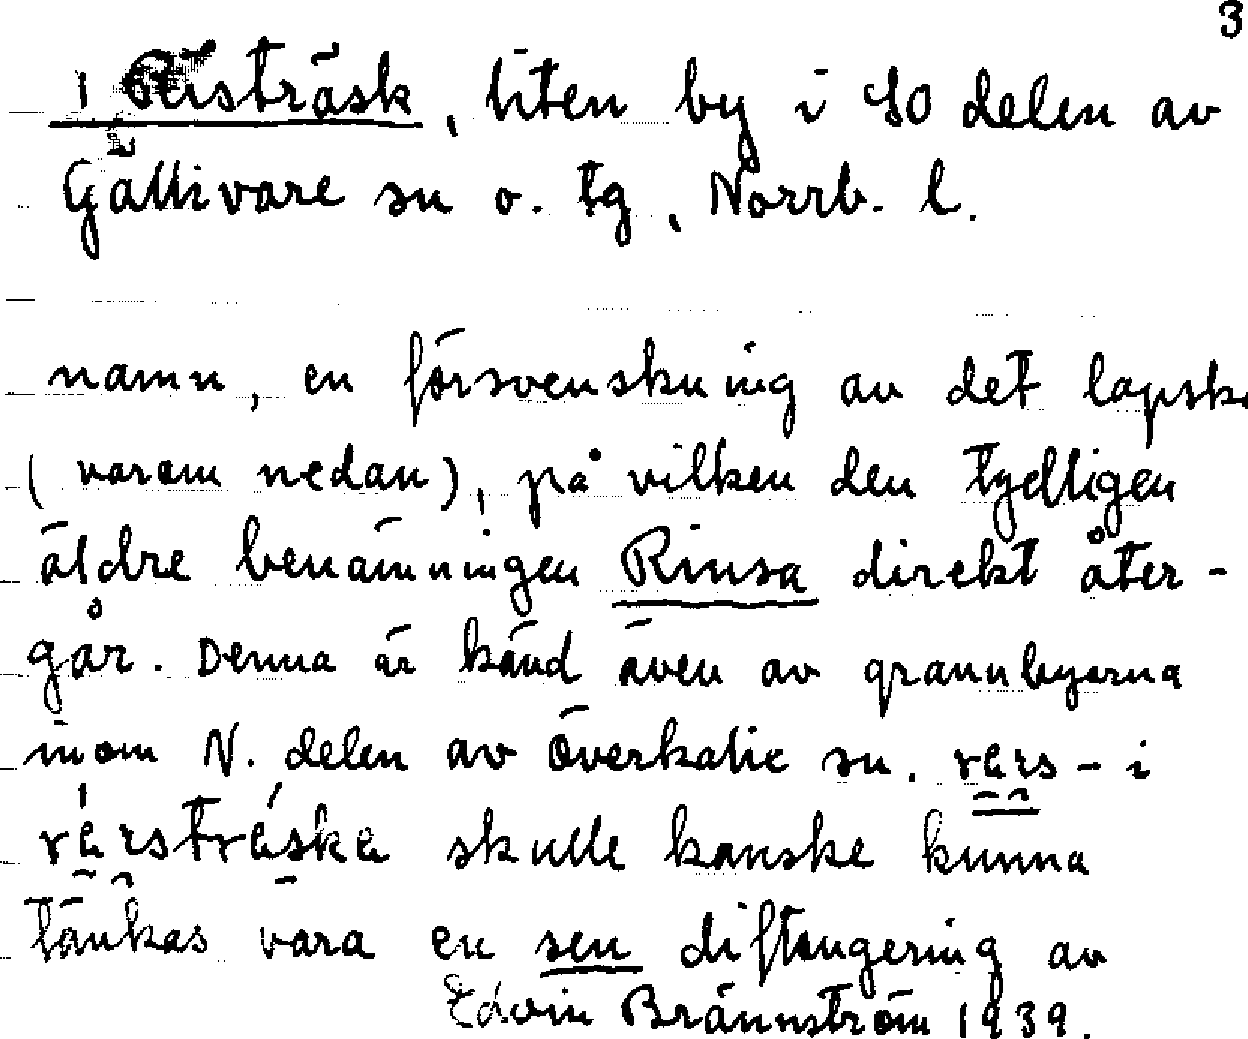 3
Risträsk, liten by i SO delen av
Gällivare sn o. tg, Norrb. l.
namn, en försvenskning av det lapska
(varom nedan), på vilken den tydligen
äldre benämningen Rinsa direkt åter-
går. Denna är känd även av grannbyarna
inom N. delen av Överkalix sn. - i
skulle kanske kunna
tänkas vara en sen diftongering av
Edvin Brännström 1939.